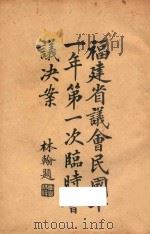 福建省議會民國十
一年第一次臨時會
議決案
林翰題